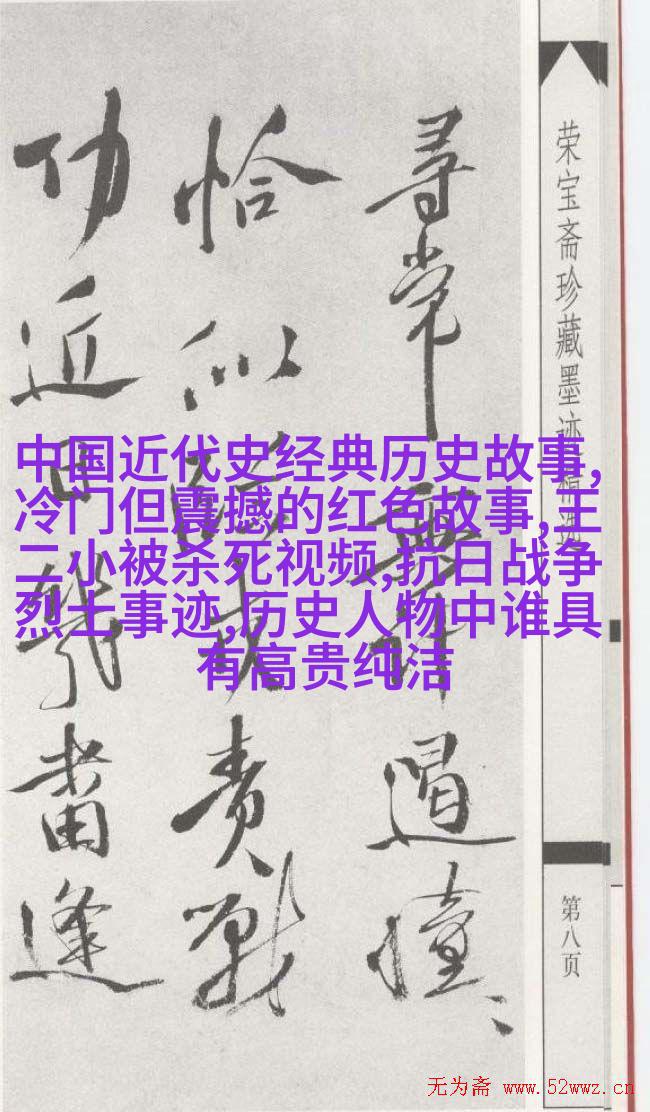 荣宝斋珍藏墨迹精选
第八页
尋常無
恰似責戰
功近逢
中国近代史经典历史故事,
冷门但震撼的红色故事,王
二小被杀死视频,抗日战争
烈士事迹,历史人物中谁具
有高贵纯洁
无为斋 www.52wwz.cn